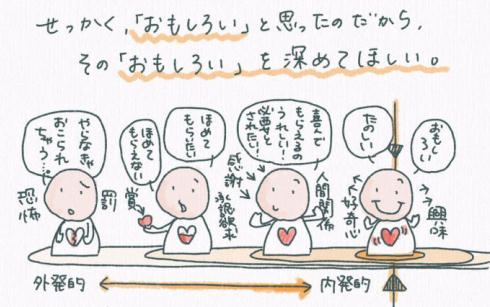 せっかく、「おもしろい」と思ったのだから、
その「おもしろい」を深めてほしい。
やらなきゃ
おこられ
ちゃう…
恐怖
罰
ほめて
もらえない
賞
ほめて
もらいたい
喜んで
もらえるの
うれしい!
必要と
されたい!
感謝
承認欲求
人間関係
たのしい
おもしろい
好奇心
興味
外発的
内発的